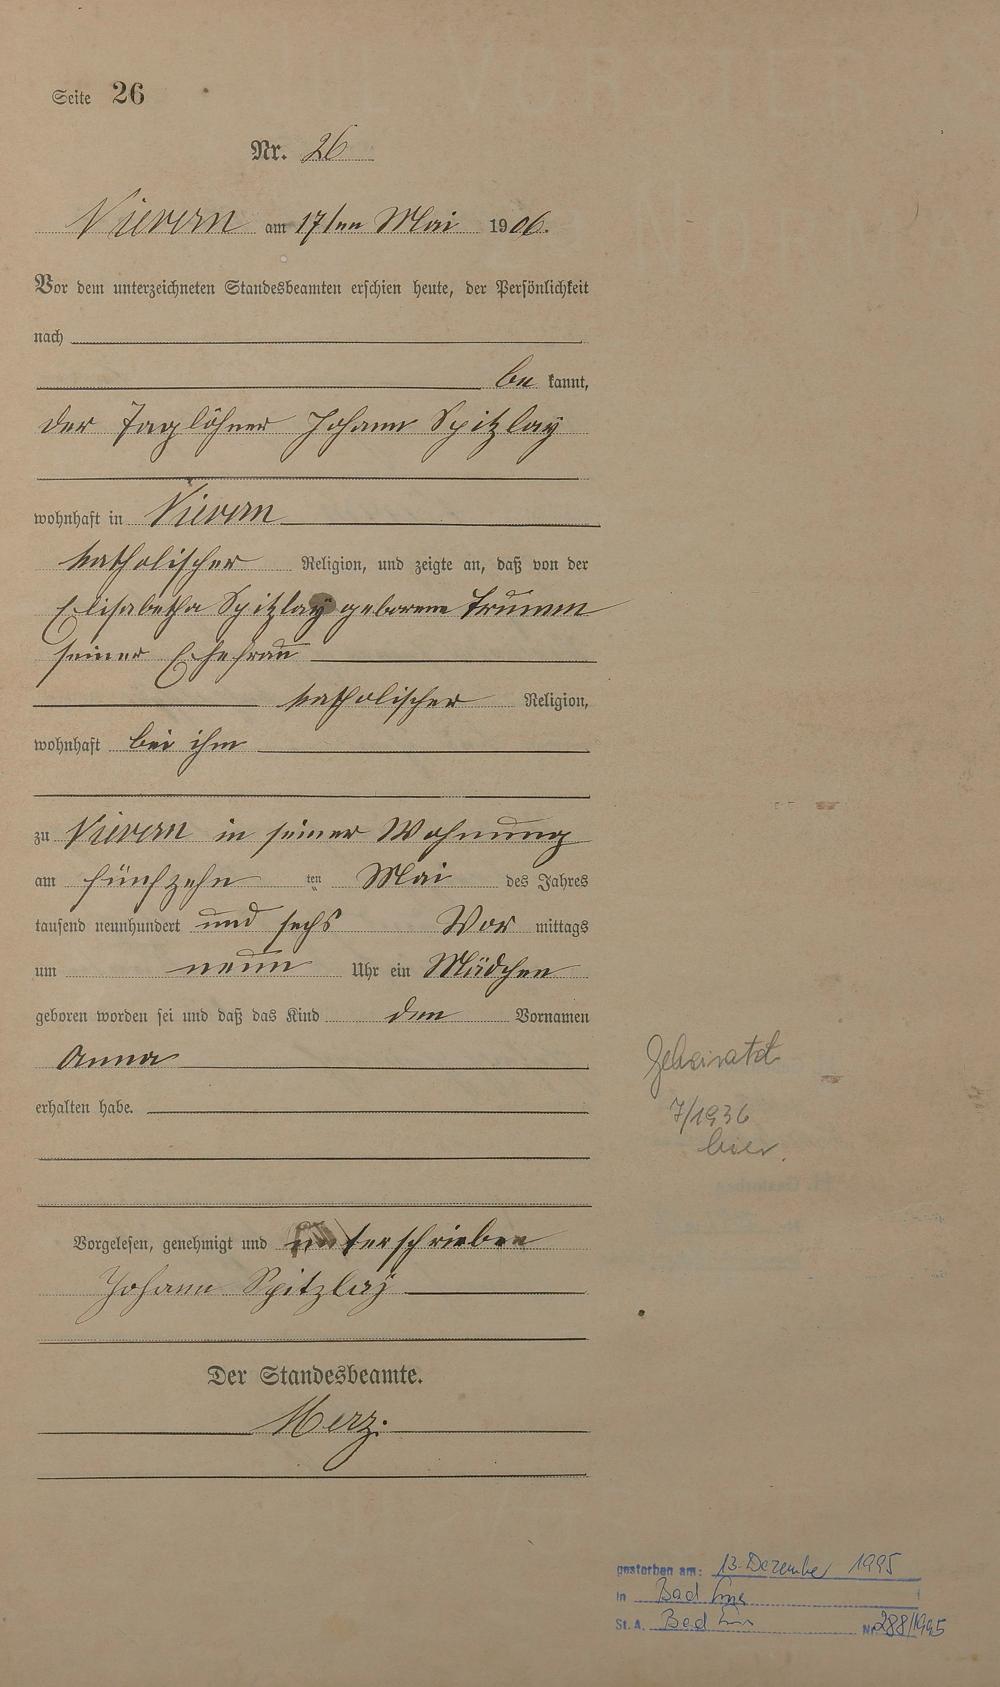 Seite 26
Nr. 26
Nievern am 17ten Mai 1906.
Vor dem unterzeichneten Standesbeamten erschien heute, der Persönlichkeit
nach
be kannt,
der Taglöhner Johann Spitzlay
wohnhaft in Nievern
katholischer Religion, und zeigte an, daß von der
Elisabetha Spitzlay geborene Trumm
seiner Ehefrau
katholischer Religion,
wohnhaft bei ihm
zu Nievern in seiner Wohnung
am fünfzehn ten Mai des Jahres
tausend neunhundert und sechs Vor mittags
um neun Uhr ein Mädchen
geboren worden sei und daß das Kind den Vornamen
Anna
erhalten habe.
Geheiratet
7/1936
hier.
Vorgelesen, genehmigt und unterschrieben
Johann Spitzlay
Der Standesbeamte.
Merz.
gestorben am: 13. Dezember 1995
in Bad Ems
St. A. Bad Ems Nr. 288/1995